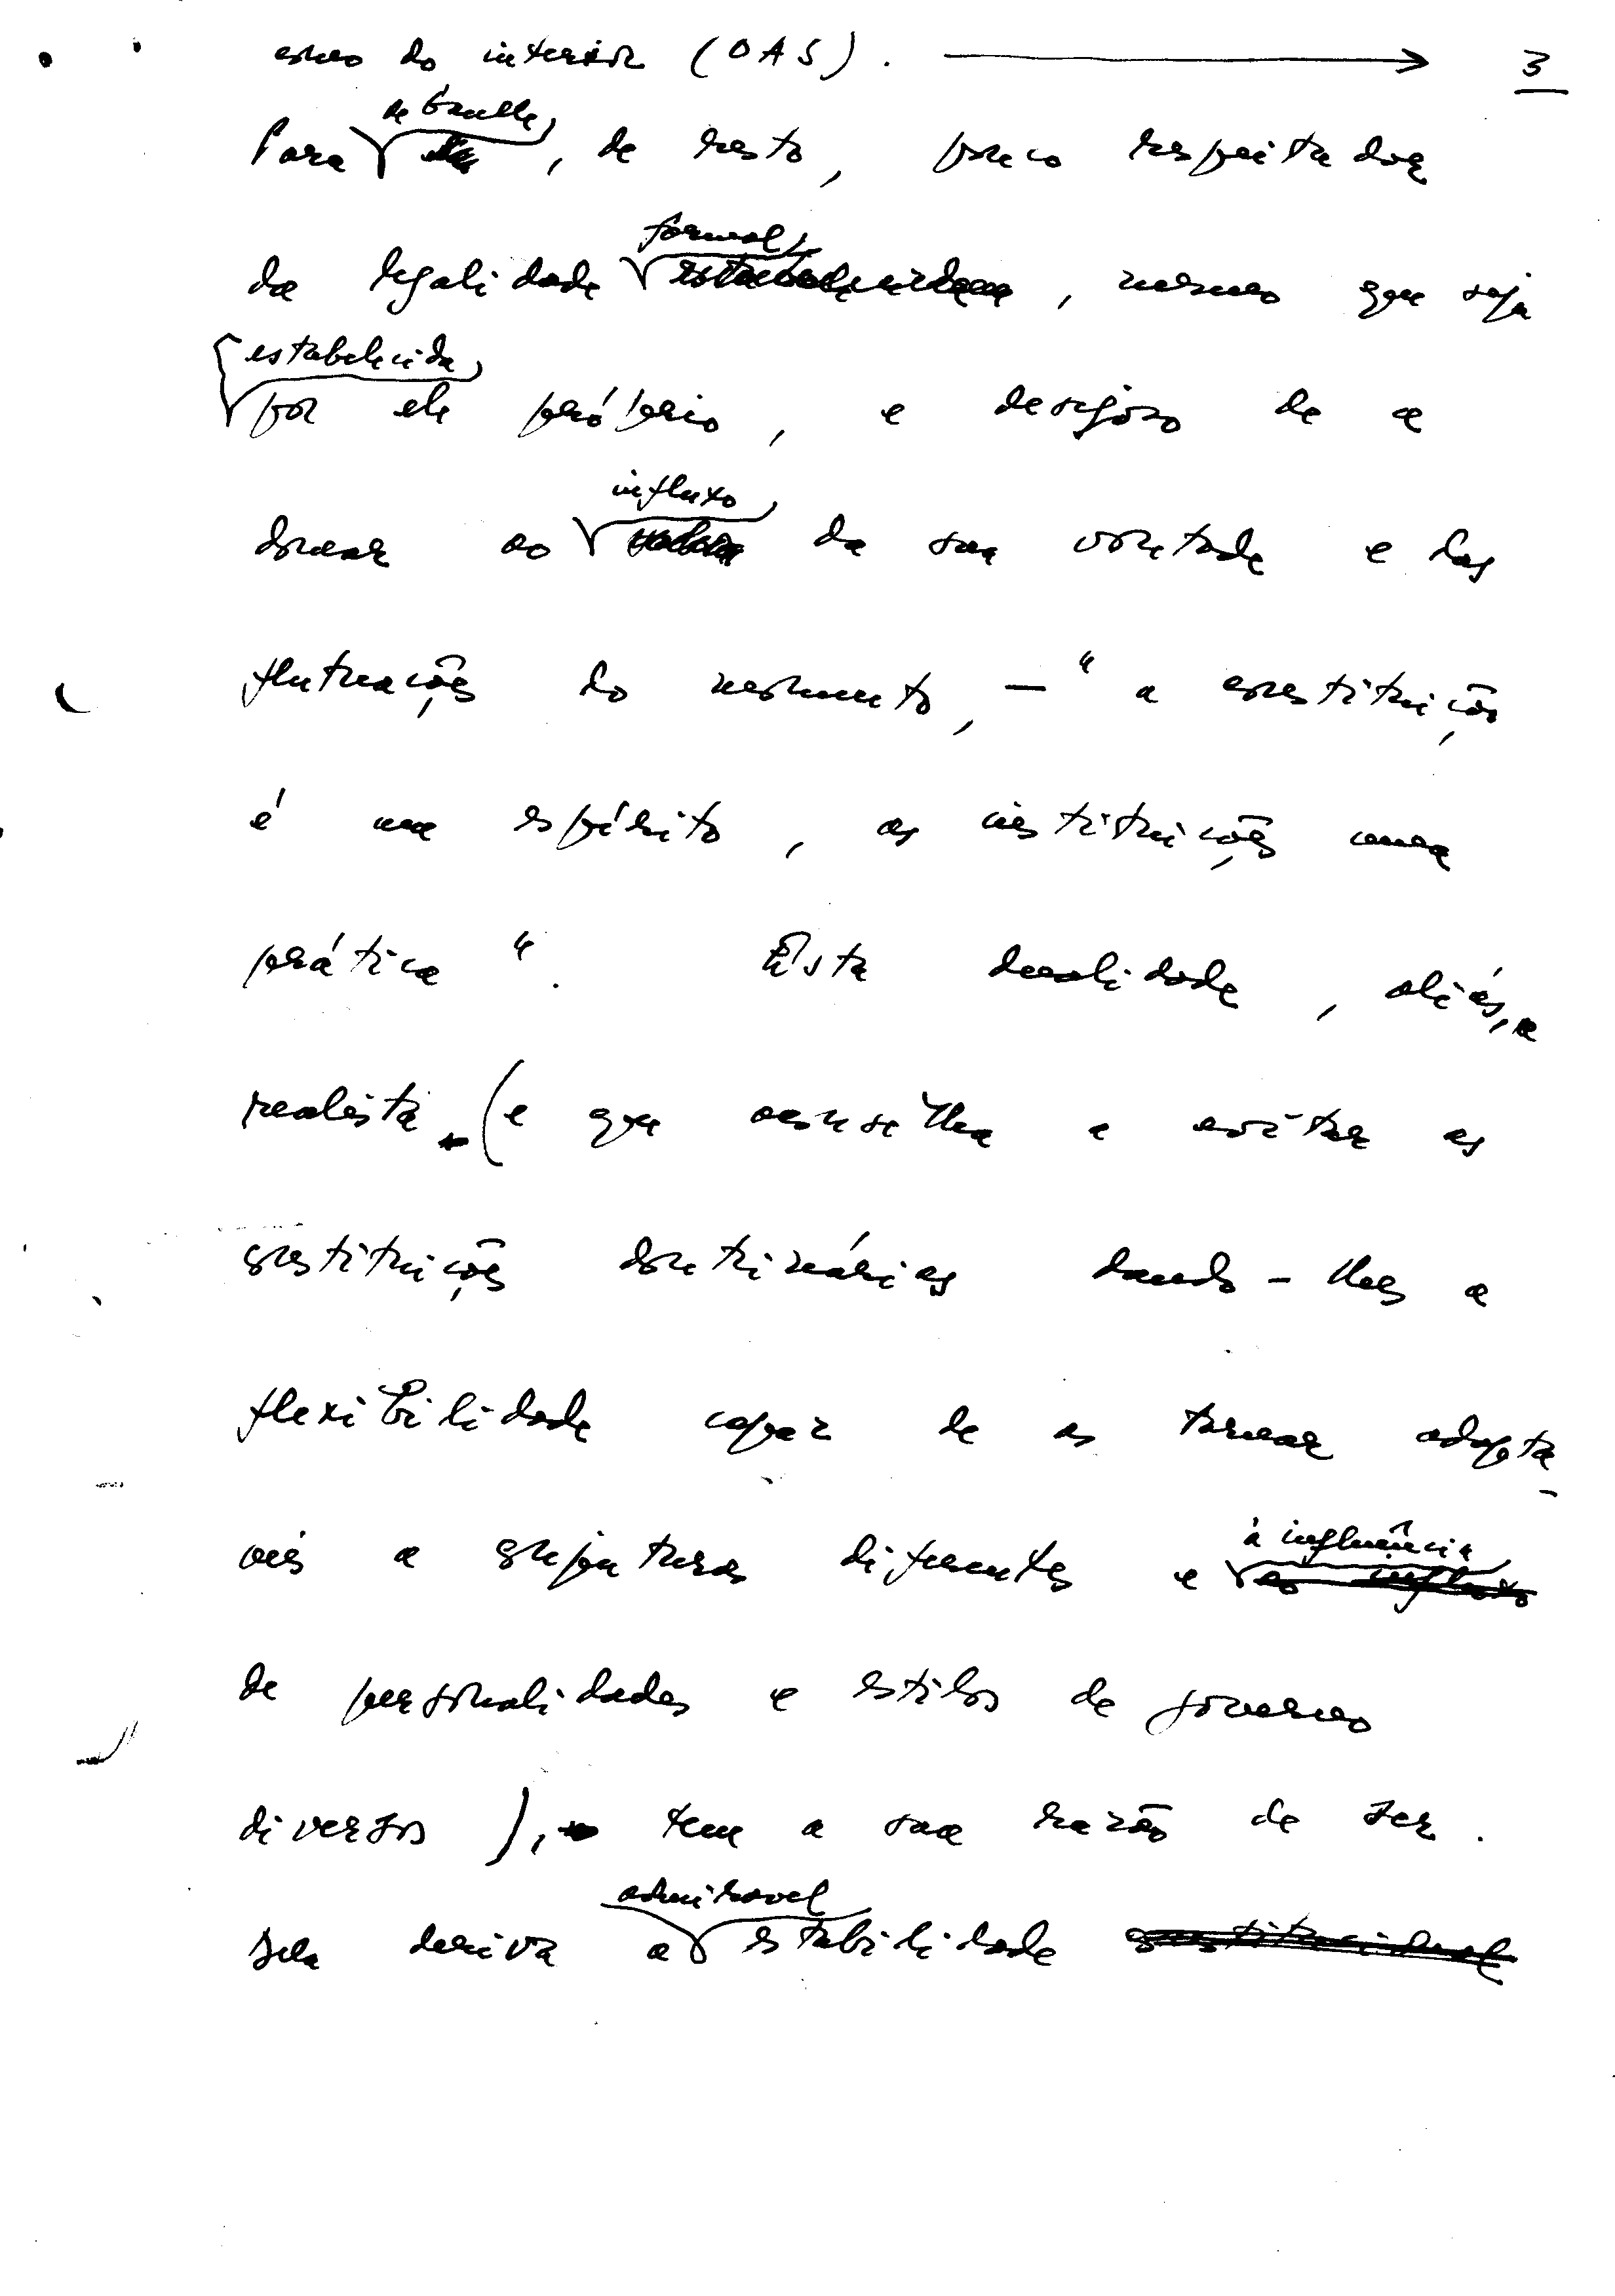 como do interior (OAS). → 3
de Gaulle
Para , de resto, pouco respeitador
formal,
da legalidade , mesmo que seja
estabelecida
por ele próprio, e desejoso de a
influxo
domar ao da sua vontade e das
flutuações do momento, — " a constituição
é um espírito, as instituições uma
prática ". Esta dualidade, aliás, a
realista (e que aconselha a evitar as
constituições doutrinárias dando-lhes a
flexibilidade capaz de as tornar adaptá-
veis a conjunturas diferentes e
à influência
ao influxo
de personalidades e estilos de governo
diversos), tem a sua razão de ser.
admirável
Dela deriva a estabilidade constitucional